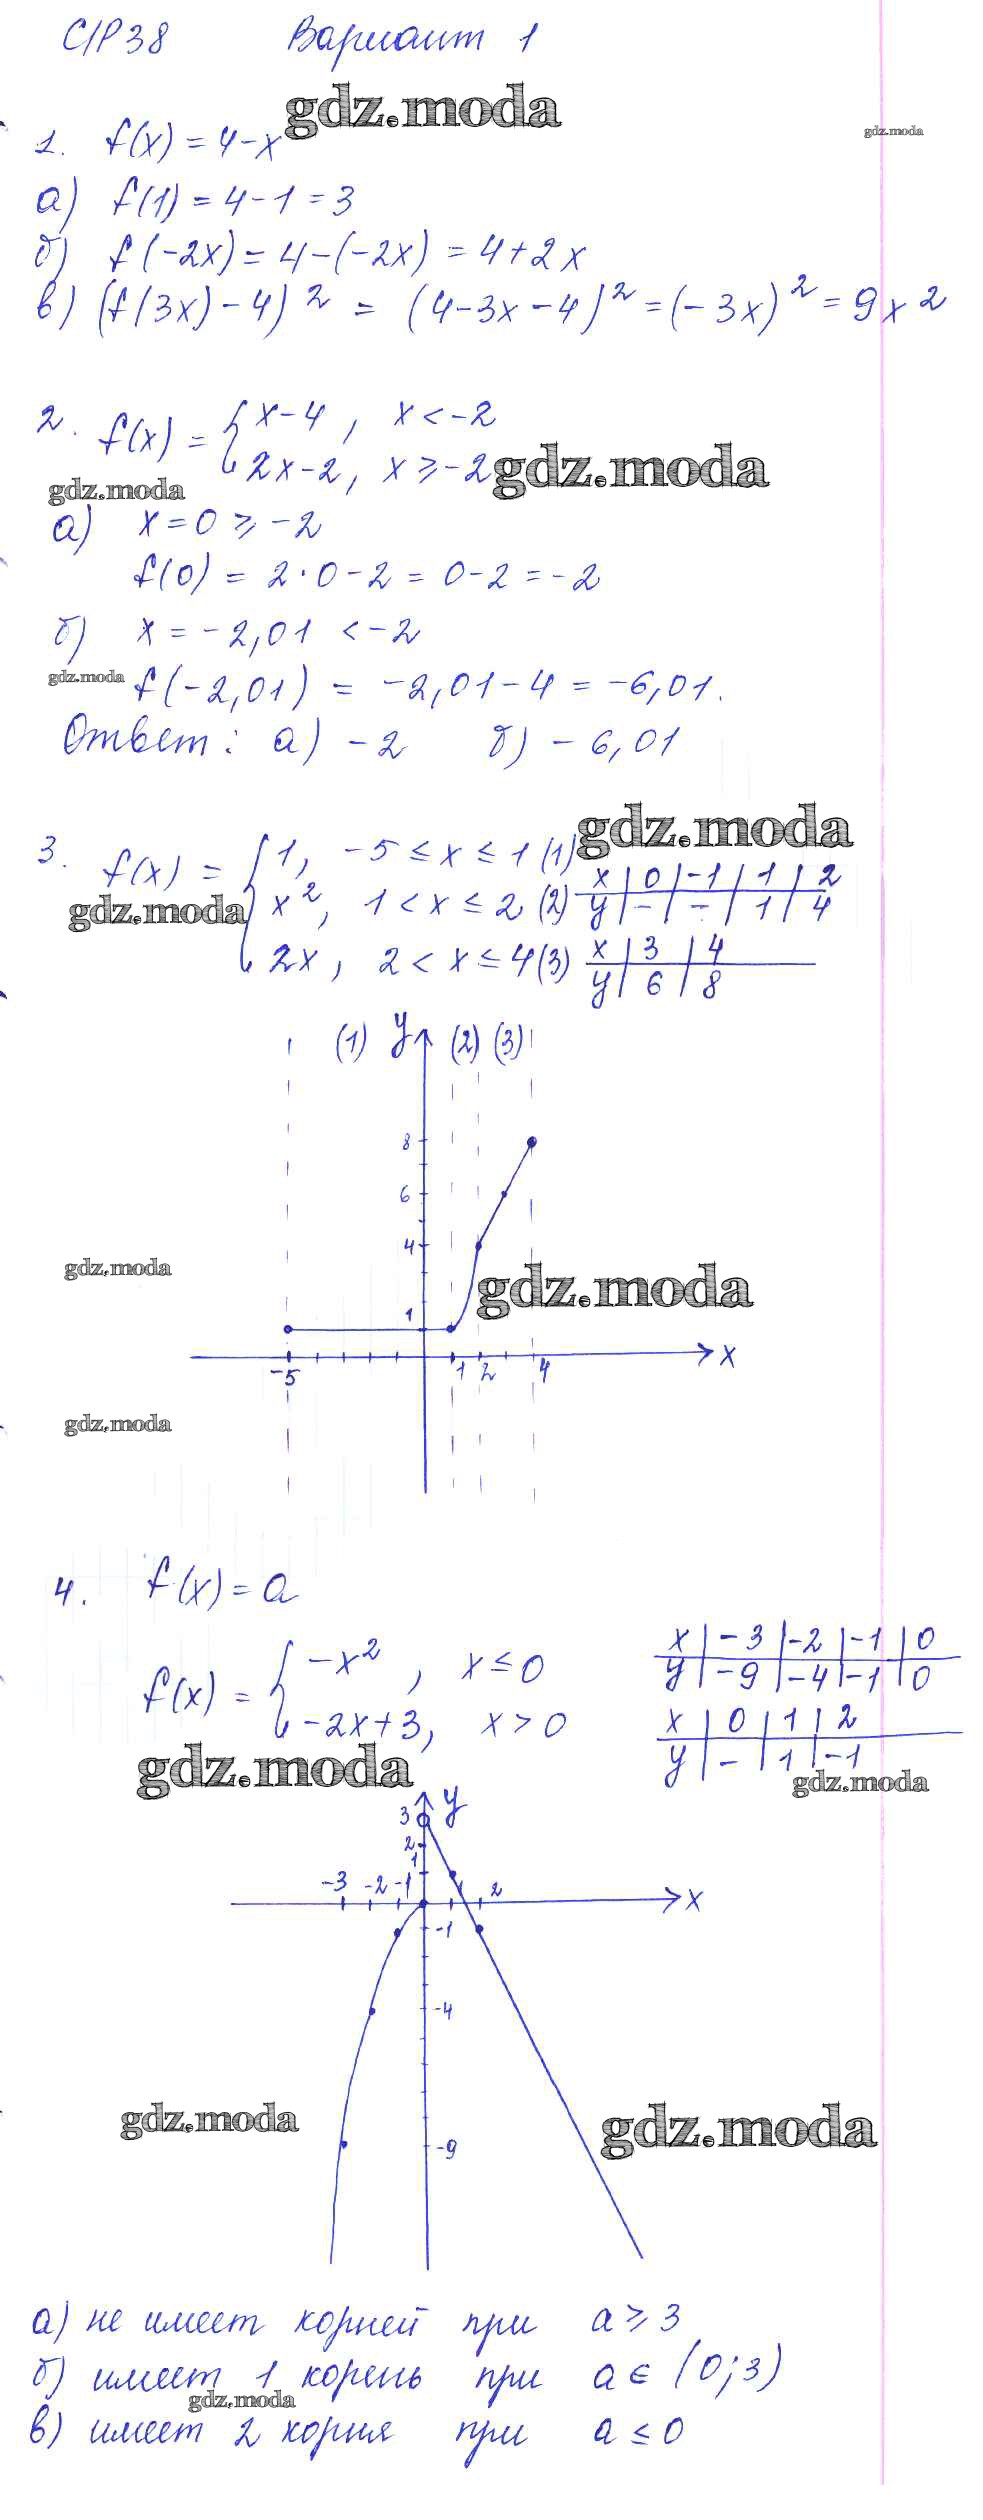 С/Р 38 Вариант 1
gdz.moda
gdz.moda
1. f(x) = 4-x
а) f(1) = 4-1 = 3
б) f(-2x) = 4-(-2x) = 4+2x
в) (f(3x)-4)² = (4-3x-4)² = (-3x)² = 9x²
2. f(x) = { x-4, x < -2
2x-2, x ≥ -2
gdz.moda
gdz.moda
а) x = 0 ≥ -2
f(0) = 2·0-2 = 0-2 = -2
б) x = -2,01 < -2
gdz.moda
f(-2,01) = -2,01-4 = -6,01.
Ответ: а) -2 б) -6,01
gdz.moda
3. f(x) = { 1, -5 ≤ x ≤ 1 (1)
x², 1 < x ≤ 2 (2)
2x, 2 < x ≤ 4 (3)
gdz.moda
x | 0 | -1 | 1 | 2
y | - | - | 1 | 4
x | 3 | 4
y | 6 | 8
(1) y (2) (3)
8
6
4
gdz.moda
gdz.moda
1
-5 1 2 4 x
gdz.moda
4. f(x) = a
f(x) = { -x², x ≤ 0
-2x+3, x > 0
x | -3 | -2 | -1 | 0
y | -9 | -4 | -1 | 0
x | 0 | 1 | 2
y | - | 1 | -1
gdz.moda
gdz.moda
3 y
2
1
-3 -2 -1 1 2 x
-1
-4
-9
gdz.moda
gdz.moda
а) не имеет корней при a ≥ 3
б) имеет 1 корень при a ∈ (0;3)
gdz.moda
в) имеет 2 корня при a ≤ 0